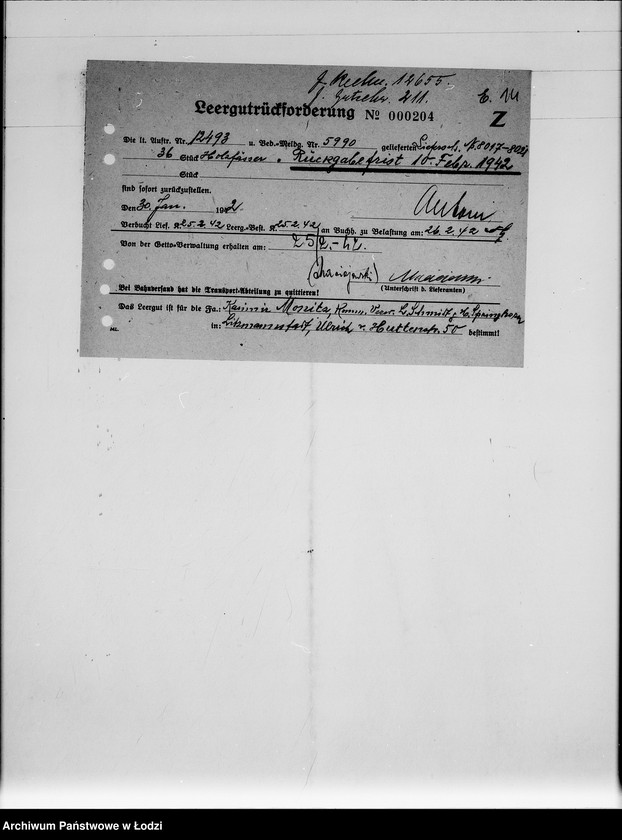 f. Rechn. 12655.
f. Gutschr. 211.
E. M
Leergutrückforderung № 000204
Z
Die lt. Auftr. Nr. 12493 u. Bed.-Meldg. Nr. 5990 gelieferten
36 Stück Holzfässer. Rückgabefrist 10. Febr. 1942
Stück
sind sofort zurückzustellen.
Den 30. Jan. 1942.
Verbucht Lief. K. 25.2.42 Leerg.-Best. K. 25.2.42 an Buchh. zu Belastung am: 26.2.42
Von der Getto-Verwaltung erhalten am:
Bei Bahnversand hat die Transport-Abteilung zu quittieren!
(Unterschrift d. Lieferanten)
Das Leergut ist für die Fa.: Kasimir Monitz, Komm. Verw. L. Schmidt
in: Litzmannstadt, Ulrich v. Huttenstr. 50 bestimmt!
Archiwum Państwowe w Łodzi